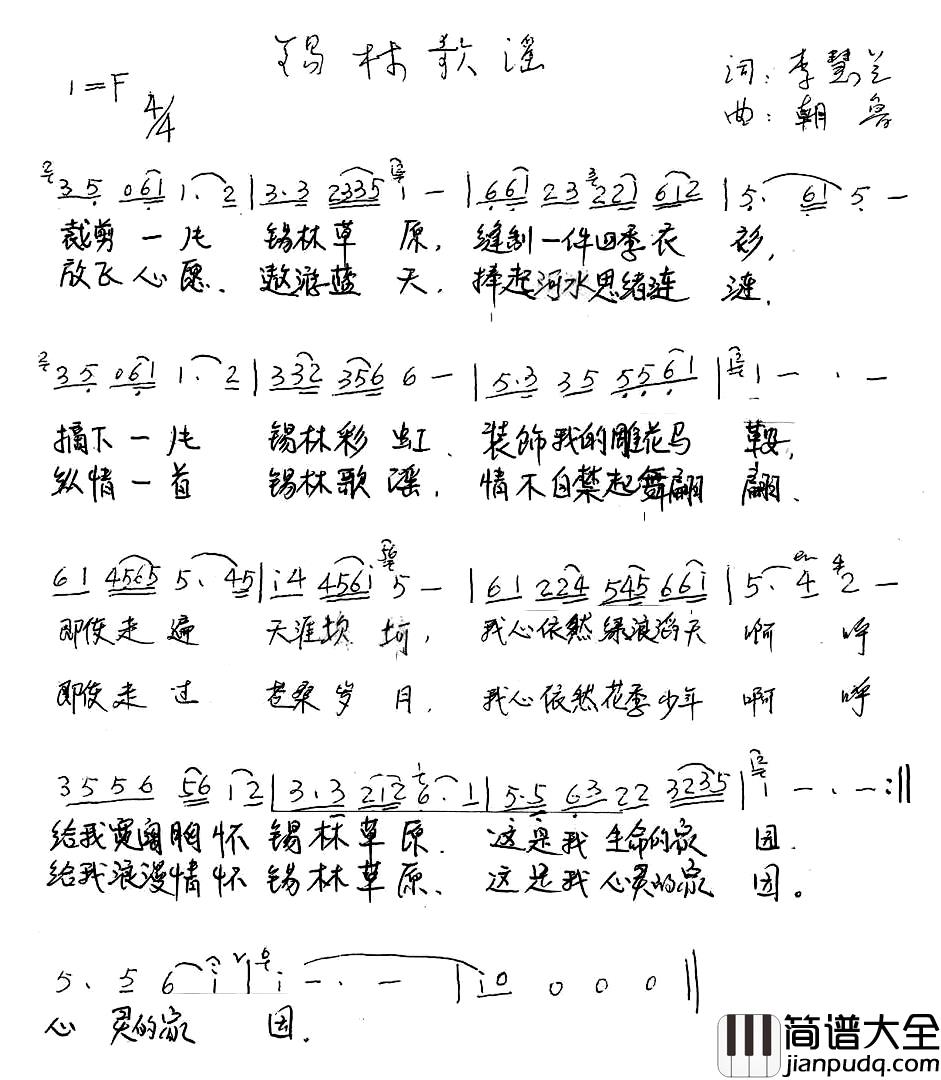 锡林歌谣
1=F 4/4
词:李慧兰
曲:朝鲁
3 5 0 6 1 1· 2 | 3·3 2335 1 - | 6 6 1 2 3 2 2 1 6 1 2 | 5· 6 1 5 -
裁剪一片 锡林草原, 缝制一件四季衣衫,
放飞心愿、遨游蓝天, 捧起河水思绪涟涟,
3 5 0 6 1 1· 2 | 3 3 2 3 5 6 6 - | 5·3 3 5 5 5 6 1 | 1 - · -
摘下一片 锡林彩虹、装饰我的雕花马鞍,
纵情一首 锡林歌谣, 情不自禁起舞翩翩、
6 1 4565 5· 4 5 | i 4 4 5 6 i 5 - | 6 1 2 2 4 5 4 5 6 6 i | 5· 4 2 -
即使走遍 天涯坎坷, 我心依然绿浪滔天 啊 呼
即使走过 苍桑岁月, 我心依然花季少年 啊 呼
3 5 5 6 5 6 i 2 | 3·3 2 i 2 6· 1 | 5·5 6 3 2 2 3 2 3 5 | 1 - · - :||
给我宽阔胸怀 锡林草原、 这是我 生命的家 园.
给我浪漫情怀 锡林草原、 这是我 心灵的家 园。
5· 5 6 i | i - · - | i 0 0 0 0 ||
心 灵的家 园.
简谱大全
jianpudq.com